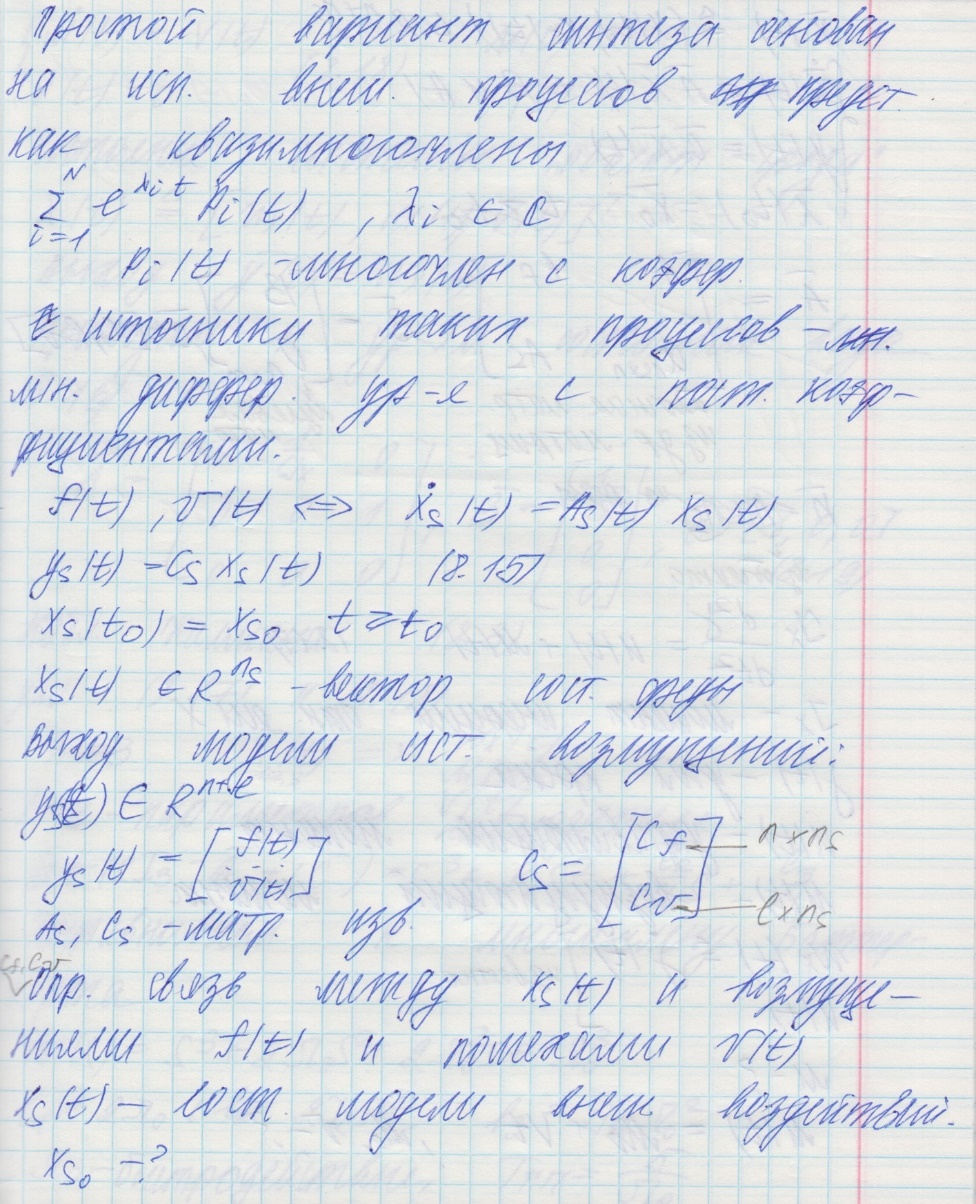 Простой вариант синтеза основан
на исп. внеш. процессов предст.
как квазимногочлены
N Σ i=1 e^{λi t} Pi(t) , λi ∈ C
Pi(t) - многочлен с коэффер.
Источники таких процессов –
лин. диффер. ур-я с пост. коэф-
фициентами.
f(t), v(t) <=> ẋs(t) = As(t) xs(t)
ys(t) = Cs xs(t) (8.15)
xs(t0) = xs0 t ≥ t0
xs(t) ∈ R^{ns} - вектор сост. среды
Выход модели ист. возмущений:
ys(t) ∈ R^{n+l}
ys(t) = [f(t) -- v(t)] Cs = [Cf Cv] — n×ns — l×ns
As, Cs - матр. изв.
Cf, Cv
Опр. связь между xs(t) и возмуще-
ниями f(t) и помехами v(t)
xs(t) – сост. модели внеш. воздействий.
xs0 - ?